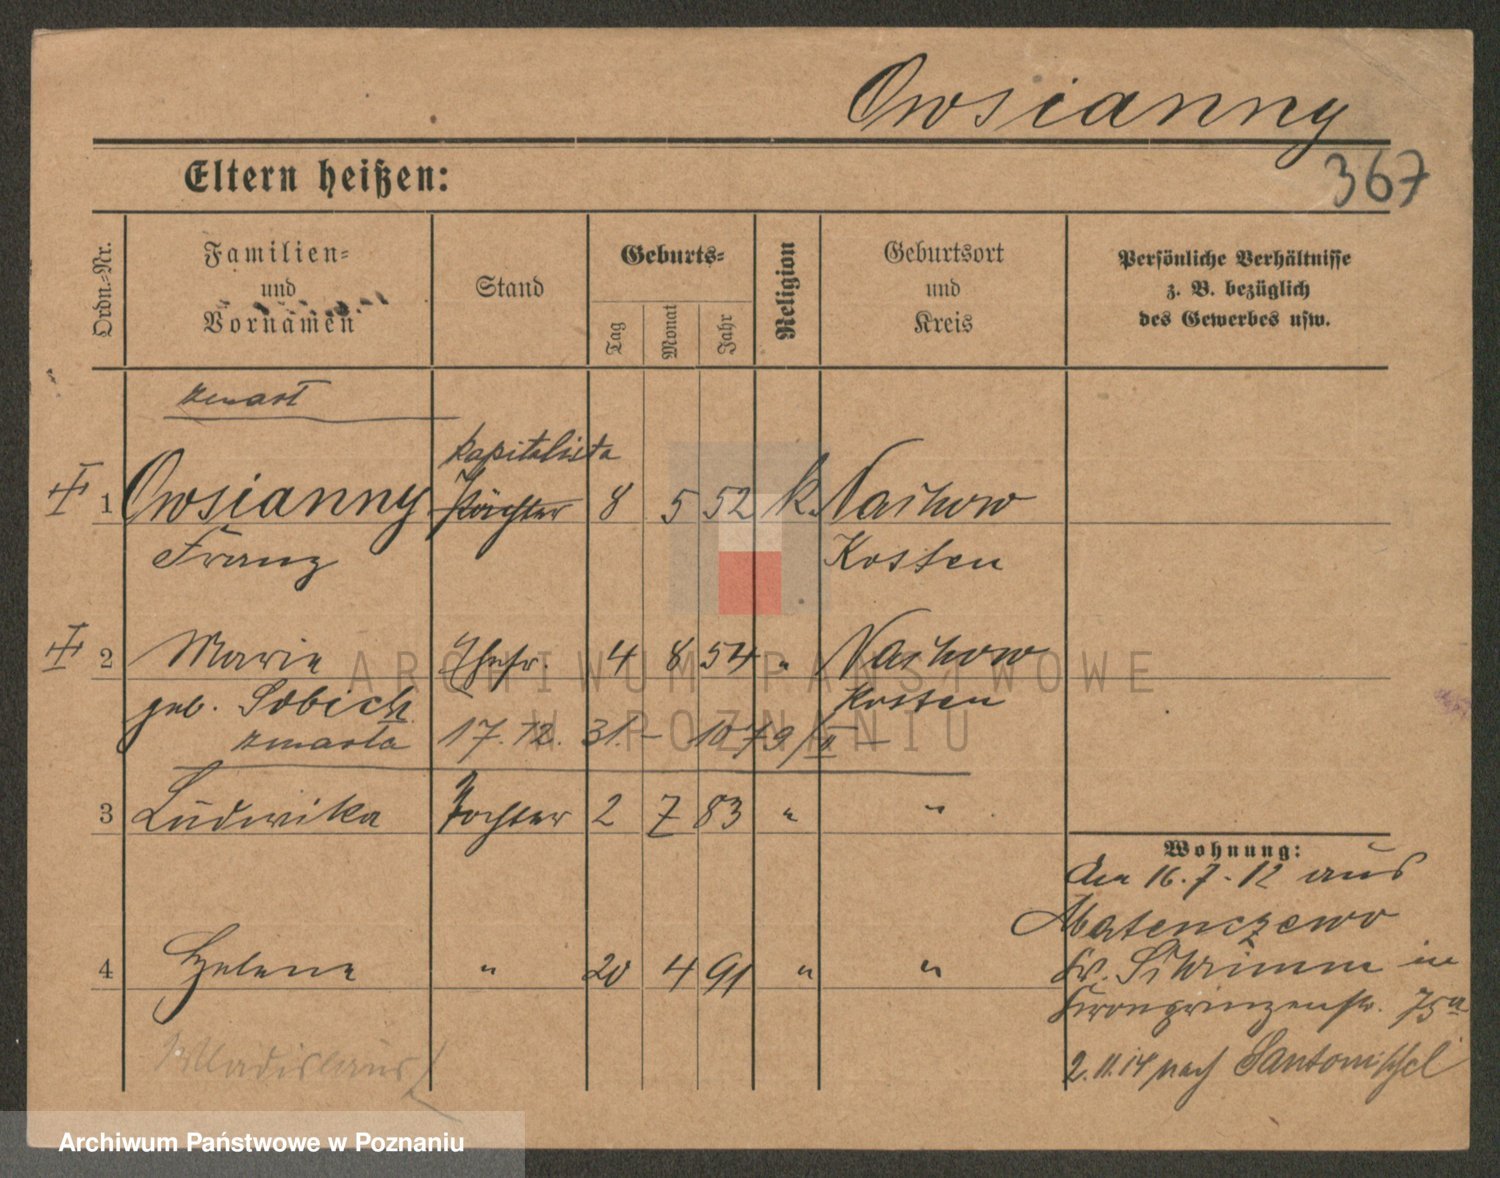 Owsianny
367
Eltern heißen:
Ordn.-Nr.
Familien-
und
Vornamen
Stand
Geburts-
Tag
Monat
Jahr
Religion
Geburtsort
und
Kreis
Persönliche Verhältnisse
z. B. bezüglich
des Gewerbes usw.
zmarł
kapitalista
1 Owsianny Pächter 8 5 52 k. Naihow
Franz Kosten
2 Marie Ehefr. 4 8 54 " Naihow
geb. Sobich Kosten
zmarła 17.12. 31.
3 Ludwika Tochter 2 7 83 " "
Wohnung:
Am 16.7.12 aus
Matenczewo
Kr. Schrimm in
4 Helene " 20 4 91 " "
Kronprinzenstr. 75a
Wladislaus
2.11.14 nach Santomischel
ARCHIWUM PAŃSTWOWE
W POZNANIU
Archiwum Państwowe w Poznaniu